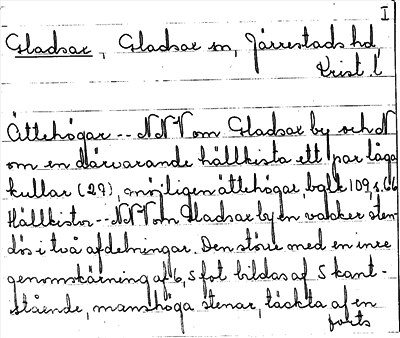 I
Gladsax, Gladsax sn, Järrestads hd,
Krist. l
Ättehögar -- NNV om Gladsax by och N
om en därvarande hällkista ett par låga
kullar (2?), möjligen ättehögar, bglk 109, s. 66
Hällkistor -- NNV om Gladsax by en vacker sten-
dös i två afdelningar. Den större med en inre
genomskärning af 6,5 fot bildas af 5 kant-
stående, manshöga stenar, täckta af en
forts